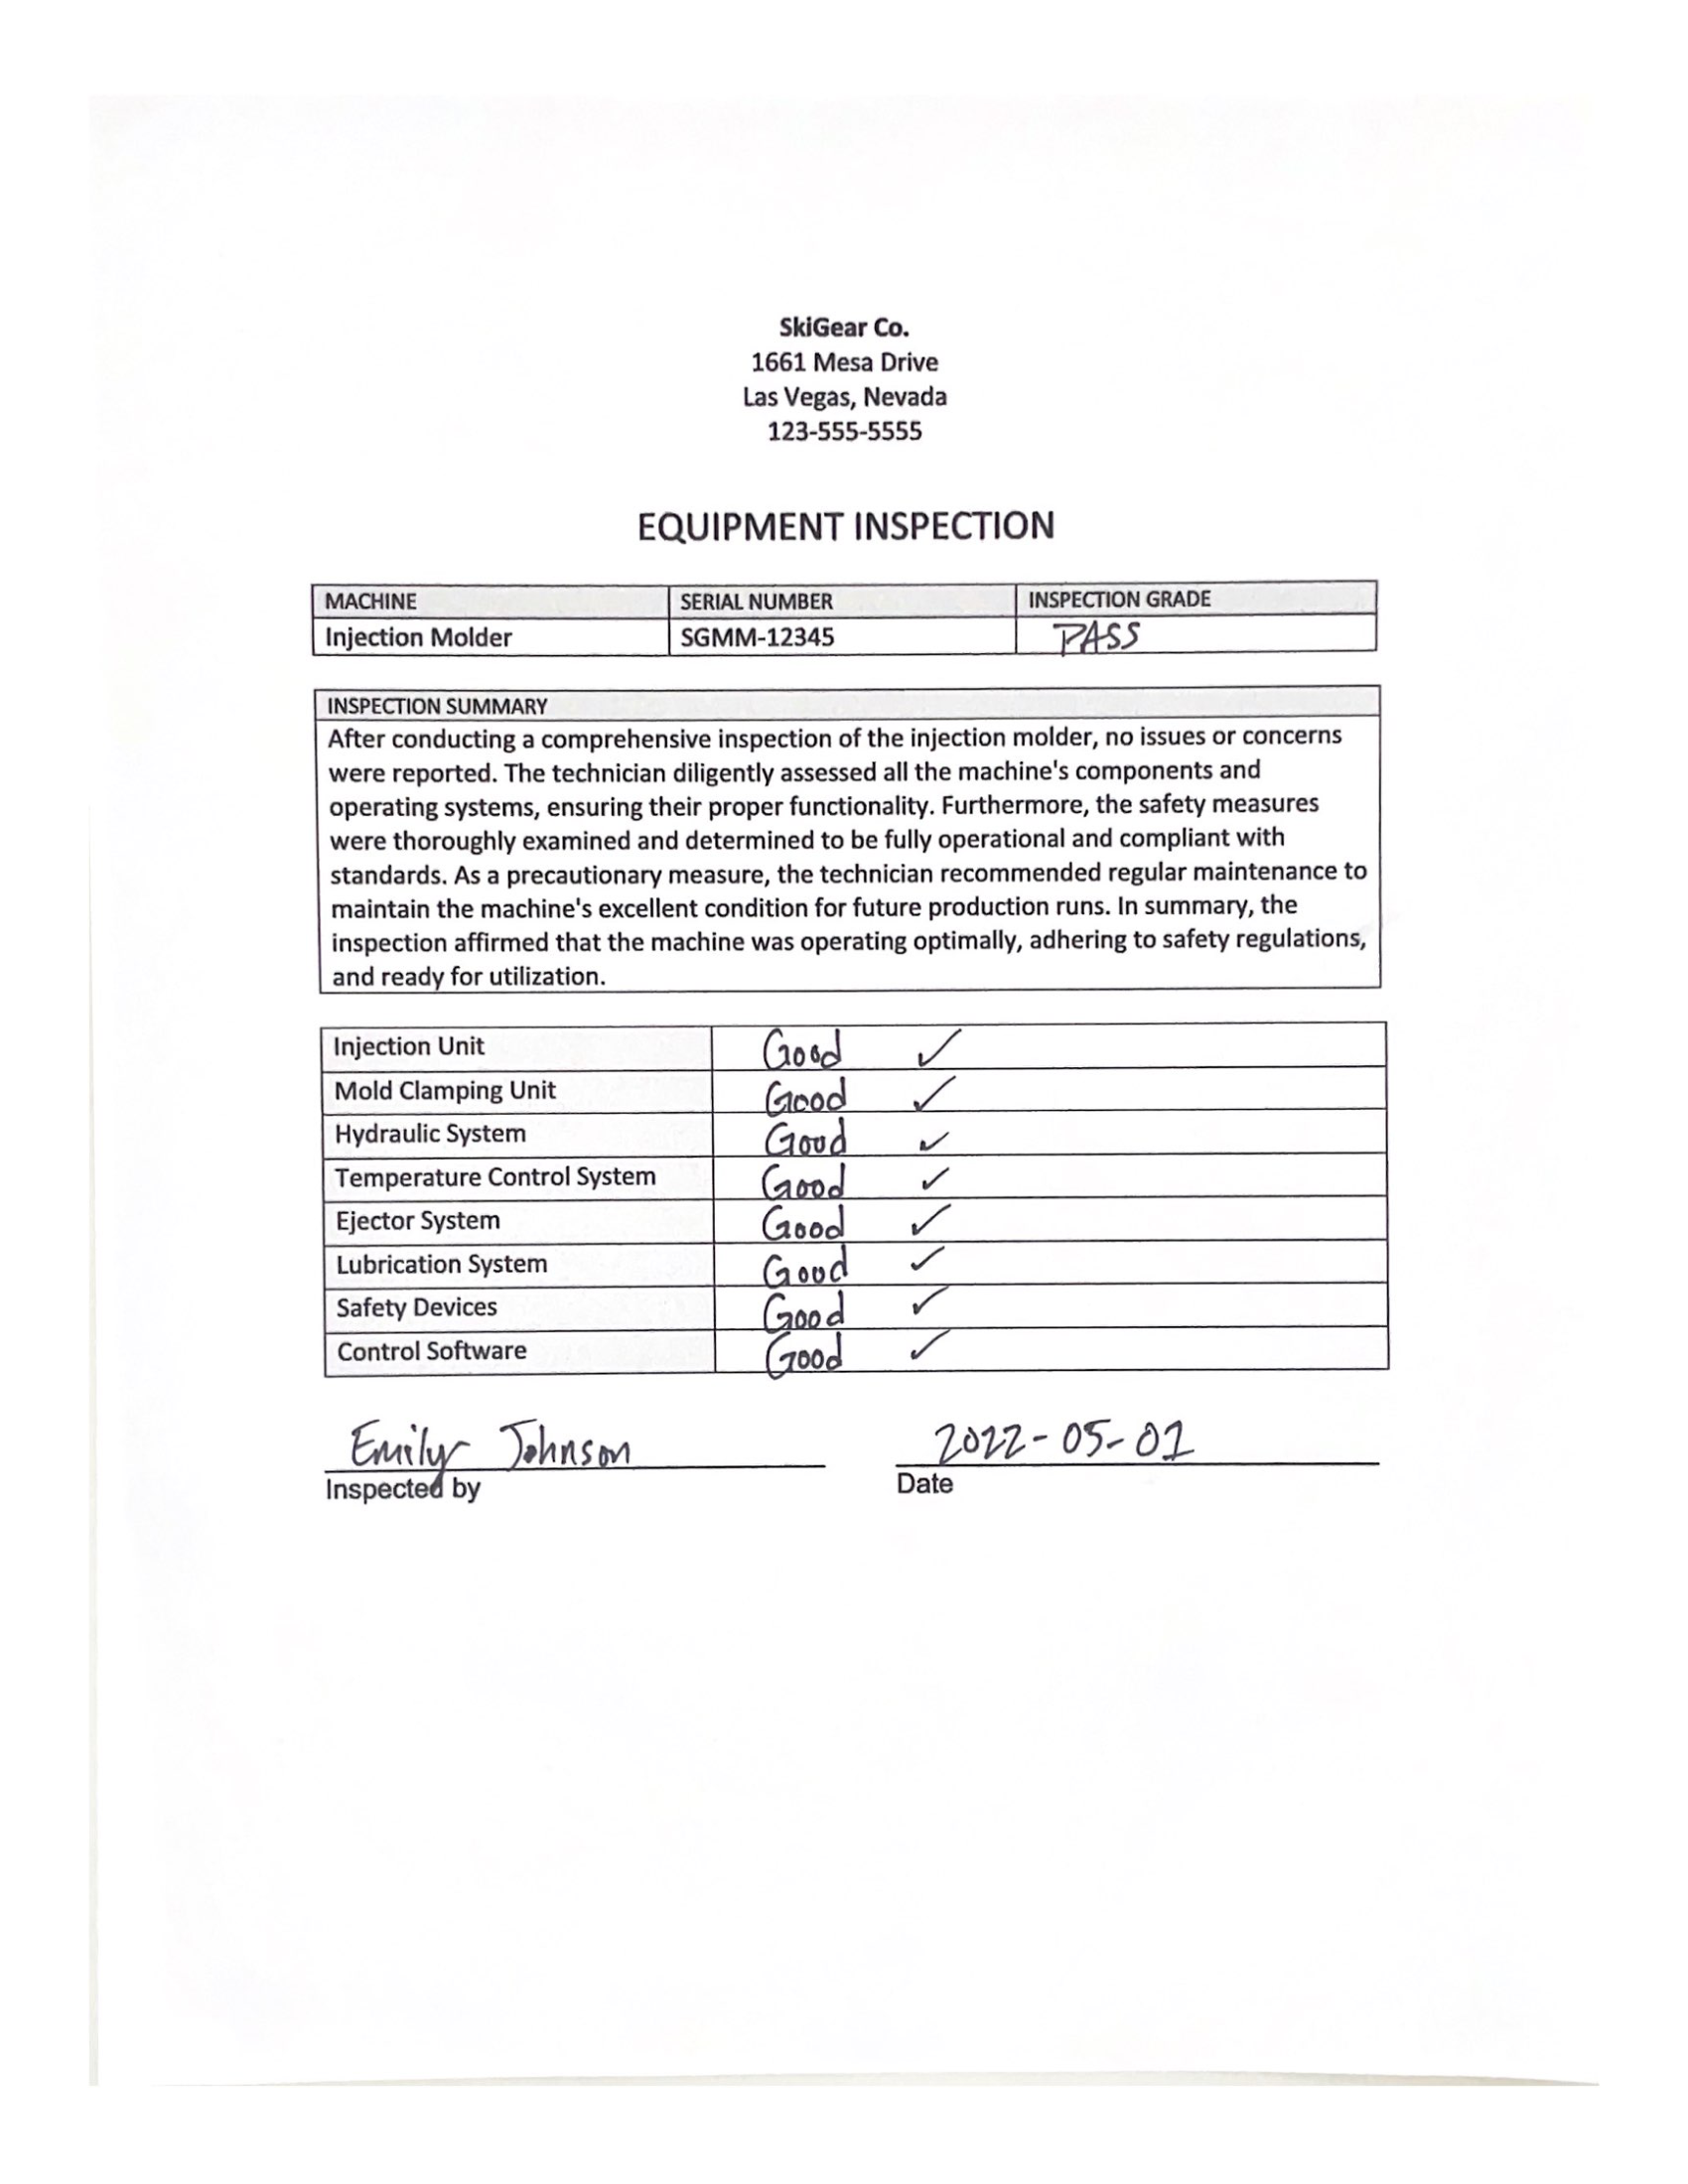 SkiGear Co.
1661 Mesa Drive
Las Vegas, Nevada
123-555-5555
EQUIPMENT INSPECTION
MACHINE SERIAL NUMBER INSPECTION GRADE
Injection Molder SGMM-12345 PASS
INSPECTION SUMMARY
After conducting a comprehensive inspection of the injection molder, no issues or concerns
were reported. The technician diligently assessed all the machine's components and
operating systems, ensuring their proper functionality. Furthermore, the safety measures
were thoroughly examined and determined to be fully operational and compliant with
standards. As a precautionary measure, the technician recommended regular maintenance to
maintain the machine's excellent condition for future production runs. In summary, the
inspection affirmed that the machine was operating optimally, adhering to safety regulations,
and ready for utilization.
Injection Unit Good ✓
Mold Clamping Unit Good ✓
Hydraulic System Good ✓
Temperature Control System Good ✓
Ejector System Good ✓
Lubrication System Good ✓
Safety Devices Good ✓
Control Software Good ✓
Emily Johnson 2022-05-01
Inspected by Date